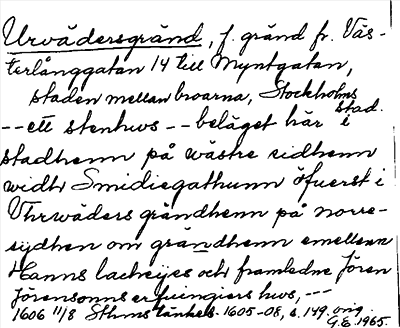 Urvädersgränd, f. gränd fr. Väs-
terlånggatan 14 till Myntgatan,
staden mellan broarna, Stockholms
stad.
-- ett stenhws -- beläget här i
stadhenn på wästre sidhenn
widh Smidiegathunn öfuerst i
Vhrwäders gröndhenn på norre-
sydhen om gröndhenn emellann
Hanns lackeijes och framledne Jören
Jörensonns erfuingiers hws, --
1606 11/8 Sthms tänkeb. 1605-08, s. 149. orig.
G.E. 1965.